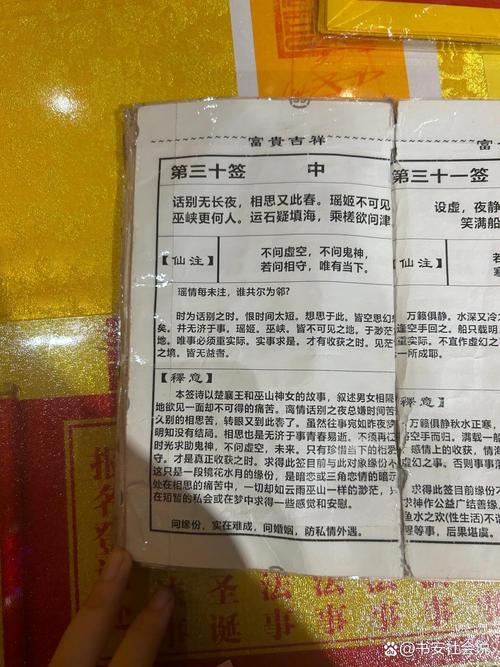 富貴吉祥
第三十签 中
话别无长夜，相思又此春。瑶姬不可见
巫峡更何人。运石疑填海，乘槎欲问津
【仙注】
不问虚空，不问鬼神，
若问相守，唯有当下。
瑶情每未注，谁共尔为邻？
时为话别之时。恨时间太短。想思于此。皆空思幻
矣。井无济于事。瑶姬。巫峡。皆不可见之地。于渺茫
地。唯事必须重际。实事求是。才有收获之时。见茫
之境。皆无益者。
【释意】
本签诗以楚襄王和巫山神女的故事，叙述男女相隔
地欲见一面却不可得的痛苦。离情话别夜总嫌时间苦
久别的相思苦，转眼又到此春了。虽然往事宛如昨夜
明知没有结局。相思也是无济于事情春易逝。不须再
时光求助鬼神，不问虚空，未来。只有珍惜当下的相
守。才是真正收获之时。求得此签目前与此对象缘份
这只是一段镜花水月的缘份，是暗恋或三角恋情的暗
处在相思的痛苦中，一切却如云雨巫山一样的渺茫，
在短暂的私会或在梦中求得一些感觉和安慰。
问缘份，实在难成，问婚姻，防私情外遇。
第三十一签
设虚，夜静
笑满船
【仙注】
万籁俱静。水深又冷
逢空手回。船只载明
实际。不直作虚幻之
一所成耶。
【释意】
万籁俱静秋水正寒，
空手而归。满载一船
感情上的收获，情海
虚幻之事。否则事事
求得此签目前缘份
求神作公益广结善缘
鱼水之欢(性生活)不谐
得等事，后果堪虞。
圣诞
法事
法事
法事
法事
@书安社会说